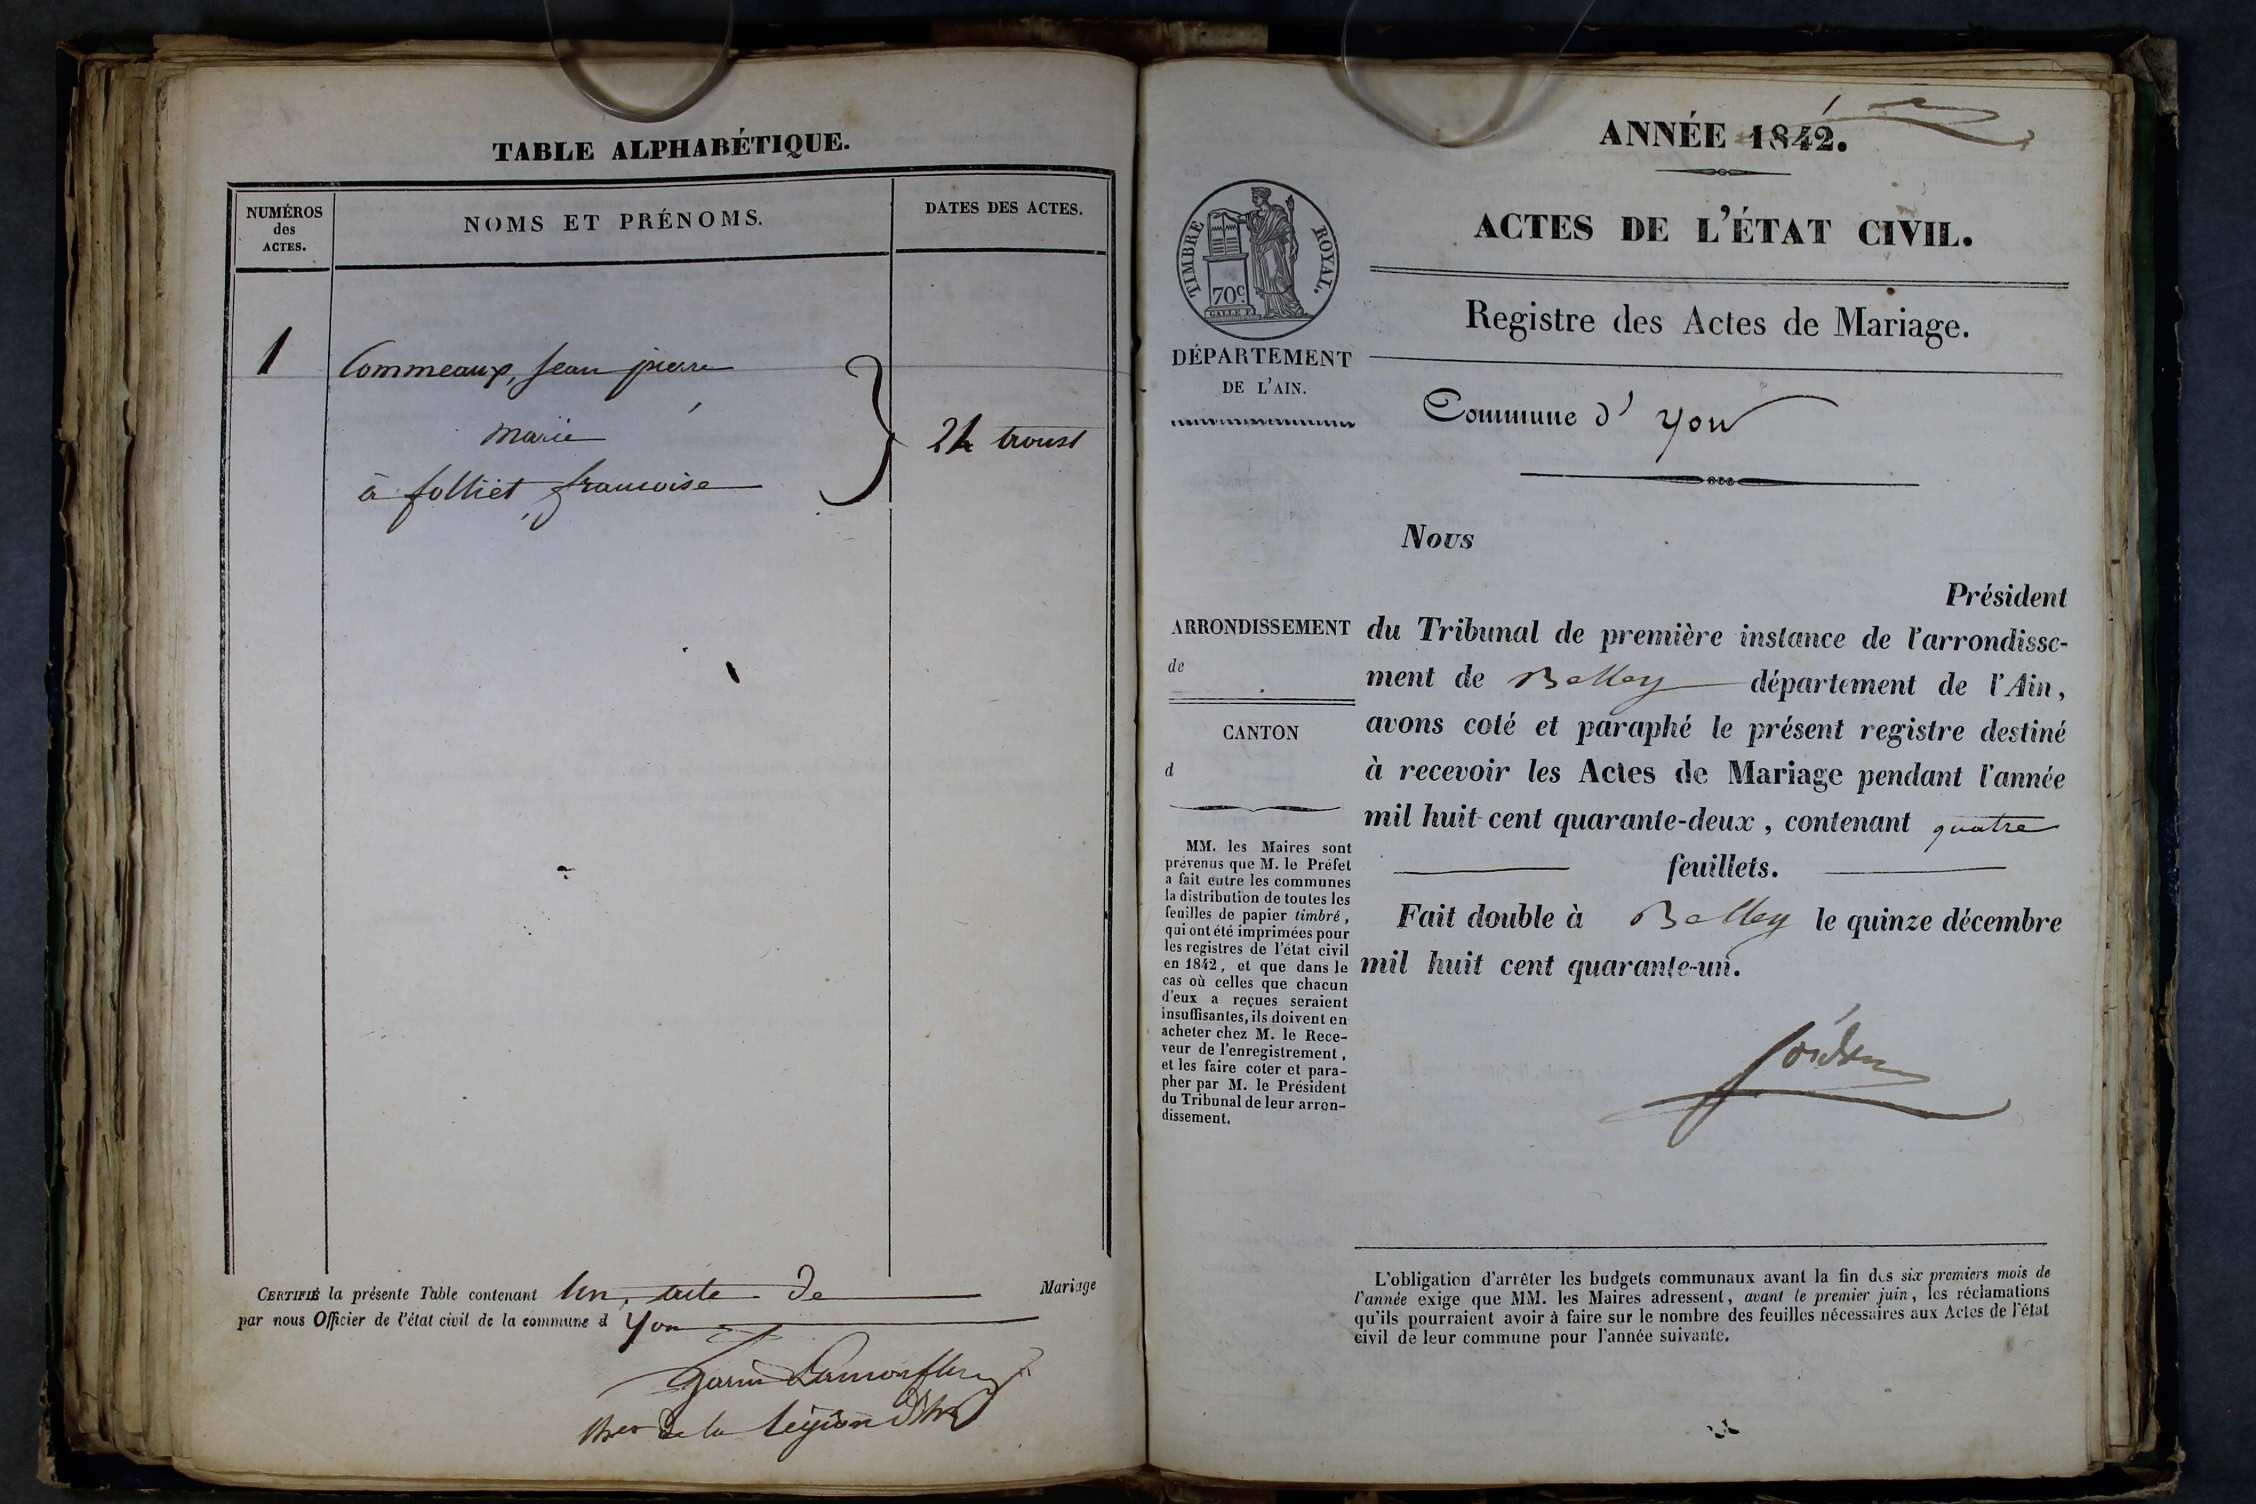 TABLE ALPHABÉTIQUE.
NUMÉROS
des
ACTES.
NOMS ET PRÉNOMS.
DATES DES ACTES.
1
Commeaux, Jean pierre
Marié
à folliet francoise
24 aoust
CERTIFIÉ la présente Table contenant un acte de Mariage
par nous Officier de l'état civil de la commune d yon
Garin Lamorflan
de la Légion
ANNÉE 1842.
ACTES DE L'ÉTAT CIVIL.
Registre des Actes de Mariage.
TIMBRE ROYAL.
70c.
DÉPARTEMENT
DE L'AIN.
Commune d' yon
Nous
Président
ARRONDISSEMENT
de
CANTON
d
du Tribunal de première instance de l'arrondisse-
ment de Belley département de l'Ain,
avons coté et paraphé le présent registre destiné
à recevoir les Actes de Mariage pendant l'année
mil huit cent quarante-deux, contenant quatre
feuillets.
Fait double à Belley le quinze décembre
mil huit cent quarante-un.
MM. les Maires sont
prévenus que M. le Préfet
a fait entre les communes
la distribution de toutes les
feuilles de papier timbré,
qui ont été imprimées pour
les registres de l'état civil
en 1842, et que dans le
cas où celles que chacun
d'eux a reçues seraient
insuffisantes, ils doivent en
acheter chez M. le Rece-
veur de l'enregistrement,
et les faire coter et para-
pher par M. le Président
du Tribunal de leur arron-
dissement.
L'obligation d'arrêter les budgets communaux avant la fin des six premiers mois de
l'année exige que MM. les Maires adressent, avant le premier juin, les réclamations
qu'ils pourraient avoir à faire sur le nombre des feuilles nécessaires aux Actes de l'état
civil de leur commune pour l'année suivante.